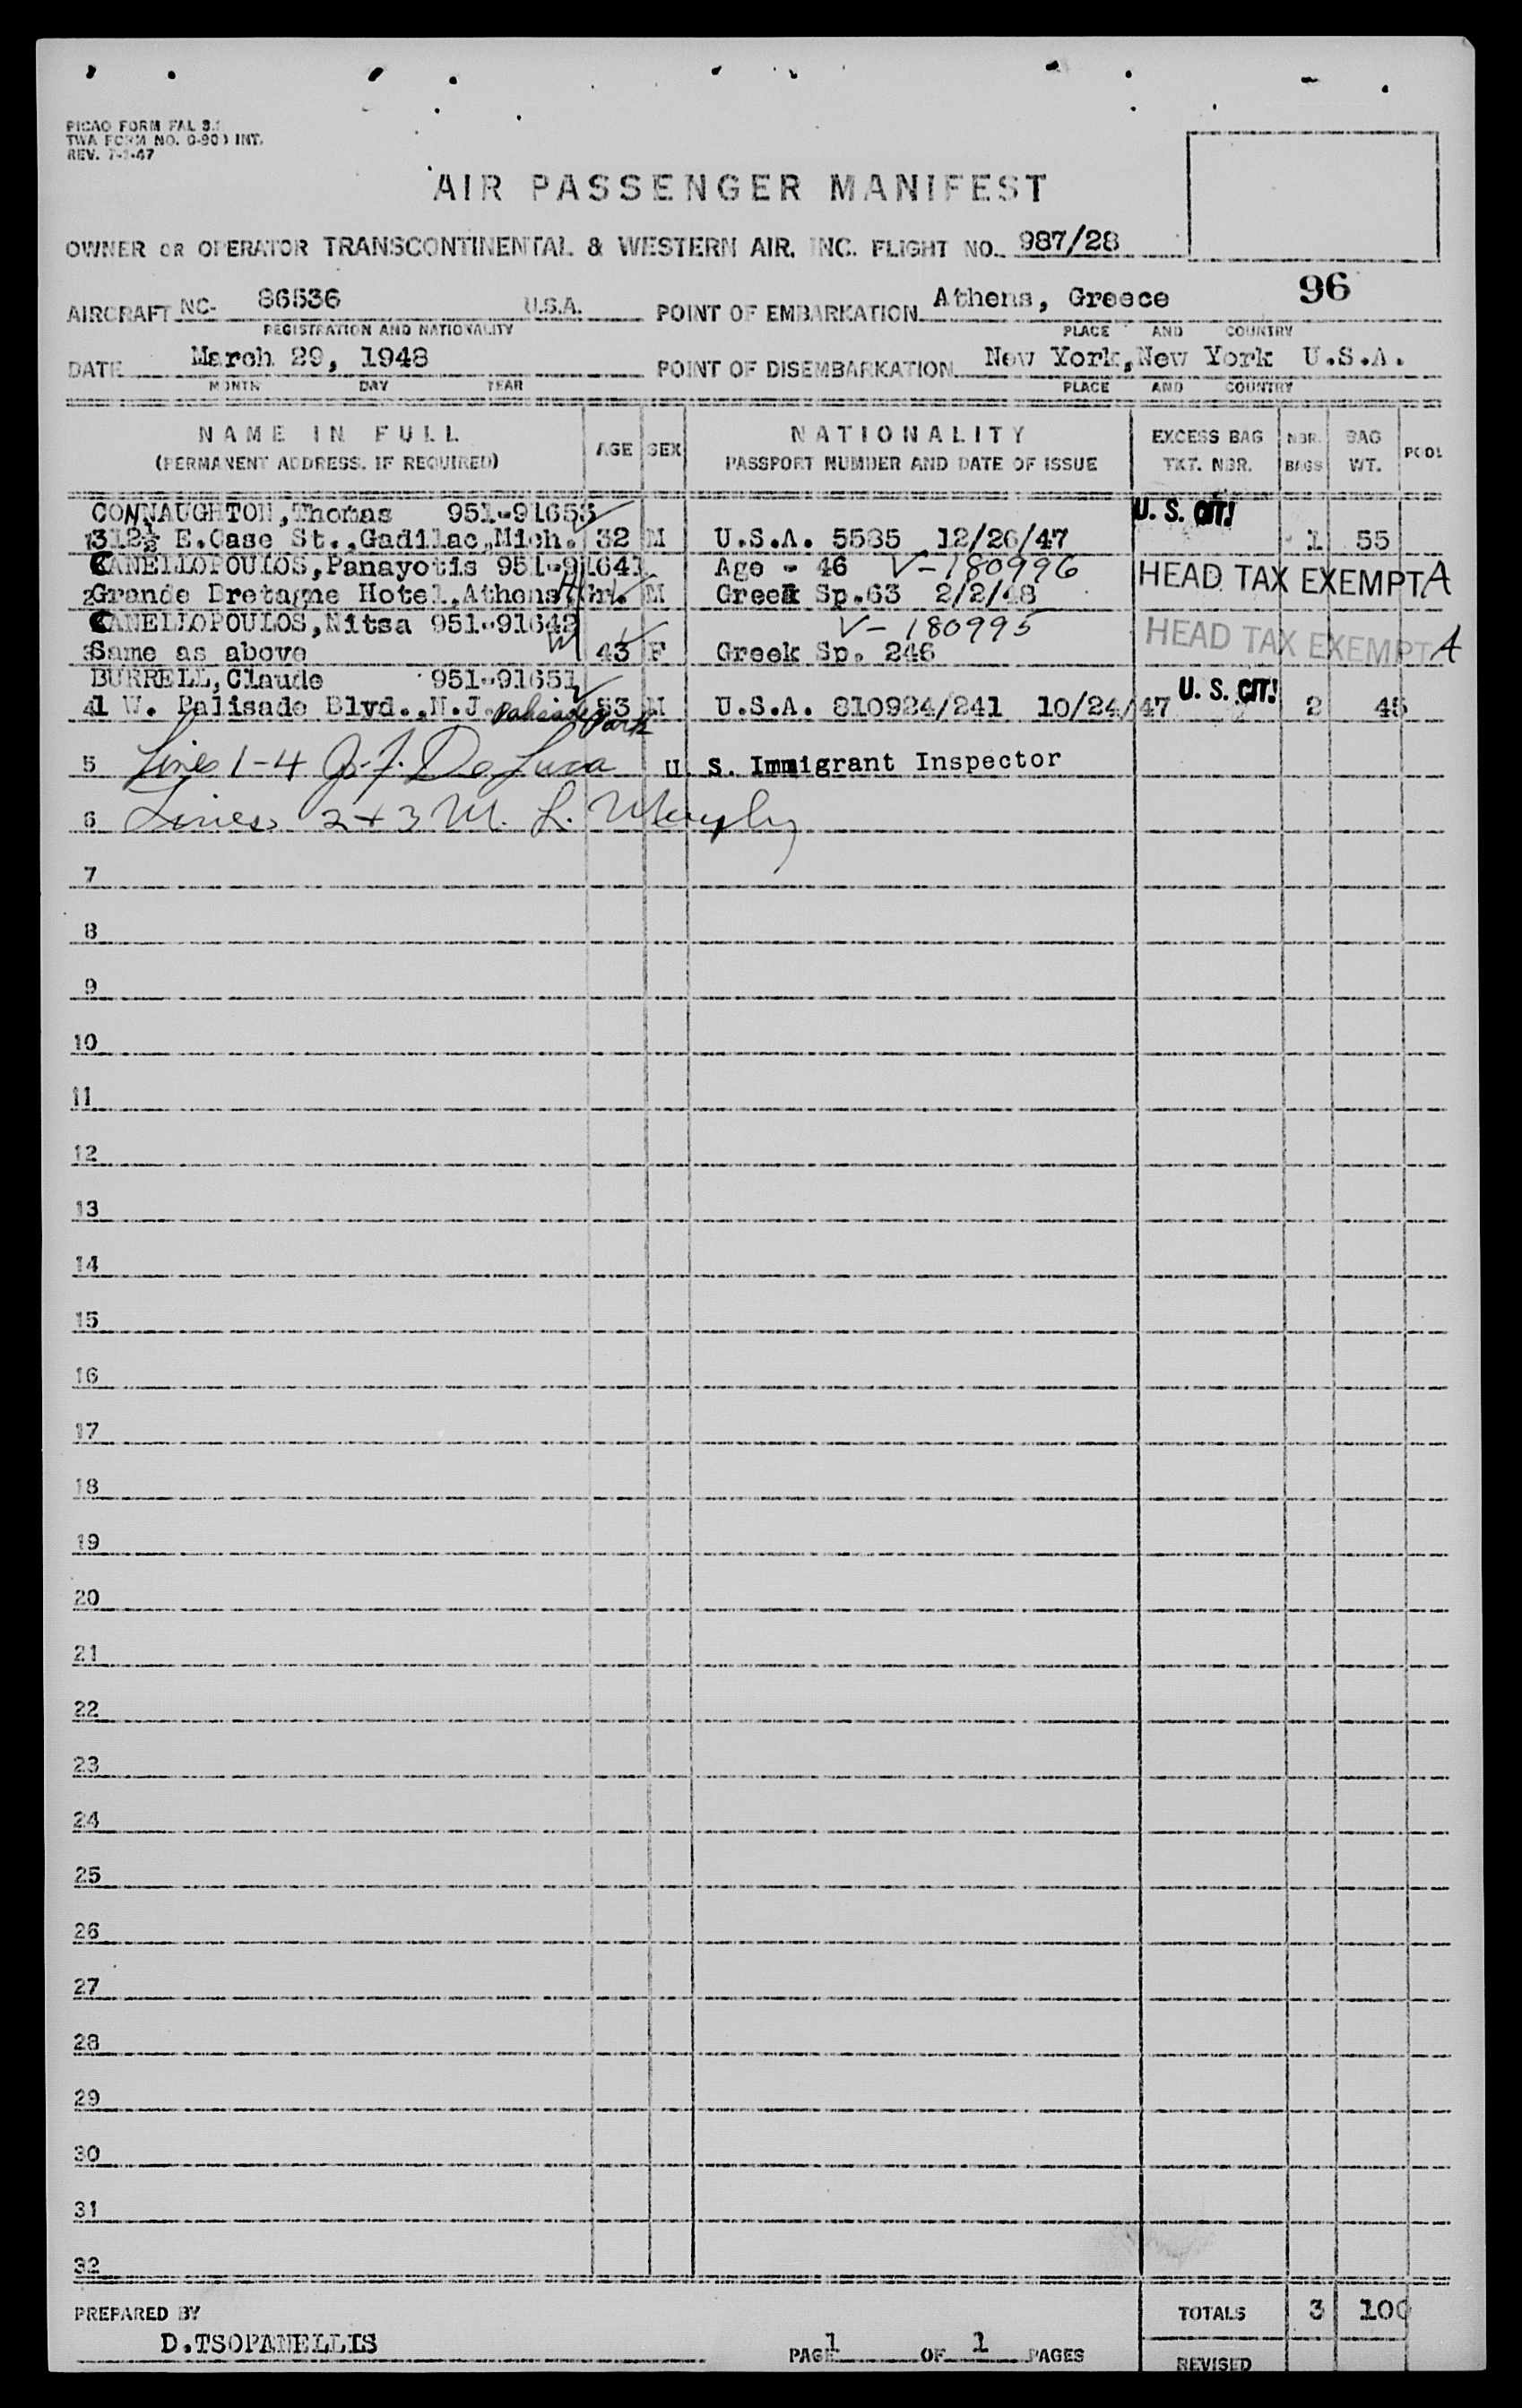 PICAO FORM FAL 3.1
TWA FORM NO. O-900 INT.
REV. 7-1-47
AIR PASSENGER MANIFEST
OWNER OR OPERATOR TRANSCONTINENTAL & WESTERN AIR, INC. FLIGHT NO. 987/28
96
AIRCRAFT NC- 86536 U.S.A. POINT OF EMBARKATION Athens, Greece
REGISTRATION AND NATIONALITY PLACE AND COUNTRY
DATE March 29, 1948 POINT OF DISEMBARKATION New York, New York U.S.A.
MONTH DAY YEAR PLACE AND COUNTRY
NAME IN FULL AGE SEX NATIONALITY EXCESS BAG NBR. BAG POOL
(PERMANENT ADDRESS, IF REQUIRED) PASSPORT NUMBER AND DATE OF ISSUE TKT. NBR. BAGS WT.
CONNAUGHTON, Thomas 951-91653 U. S. CIT!
1 312½ E. Case St., Gadilac, Mich. 32 M U.S.A. 5585 12/26/47 1 55
CANELLOPOULOS, Panayotis 951-91641 Age - 46 V-180996 HEAD TAX EXEMPT A
2 Grande Bretagne Hotel, Athens, Gr. M Greek Sp.63 2/2/48
CANELLOPOULOS, Nitsa 951-91642 V-180995 HEAD TAX EXEMPT A
3 Same as above 43 F Greek Sp. 246
BURRELL, Claude 951-91651 U. S. CIT!
4 1 W. Palisade Blvd., N.J. Palisade Park 53 M U.S.A. 810924/241 10/24/47 2 45
5 Lines 1-4 J. J. De Luca U. S. Immigrant Inspector
6 Lines 2+3 M. L.
7
8
9
10
11
12
13
14
15
16
17
18
19
20
21
22
23
24
25
26
27
28
29
30
31
32
PREPARED BY TOTALS 3 100
D. TSOPANELLIS PAGE 1 OF 1 PAGES
REVISED